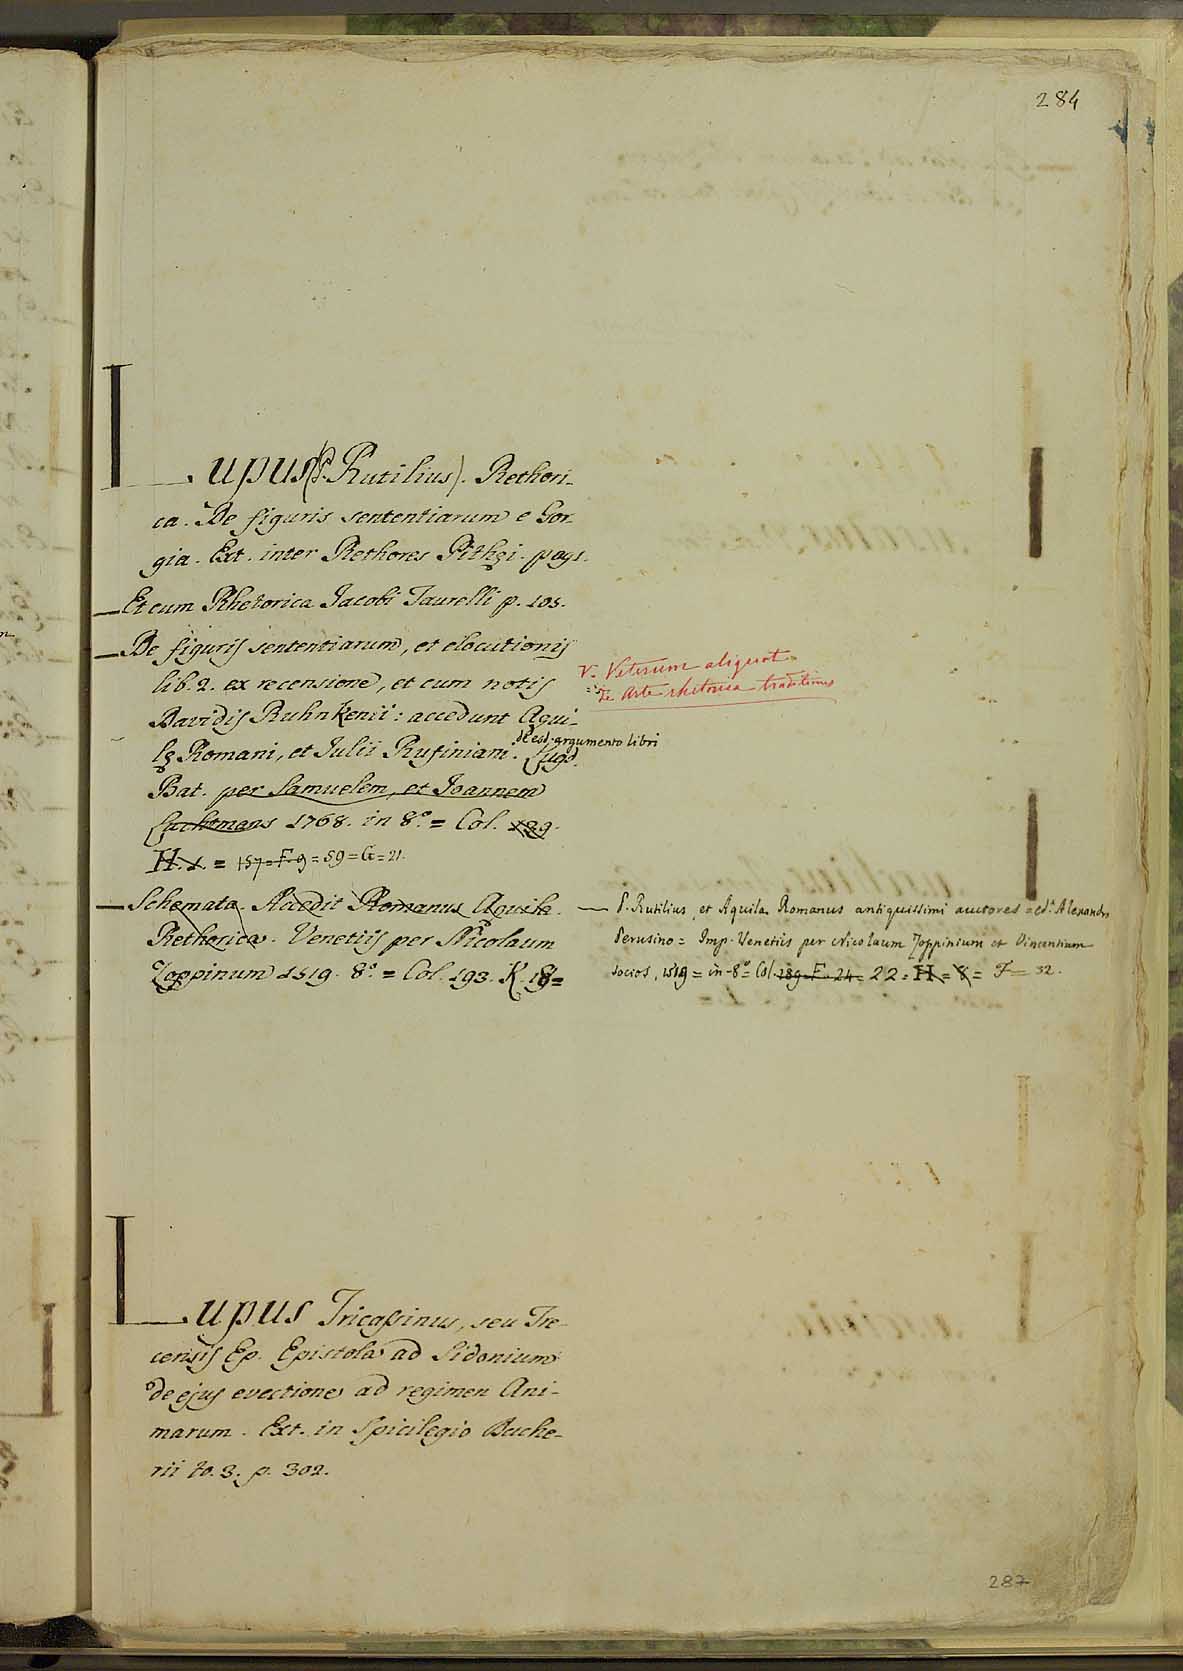 284
Lupus (P. Rutilius). Rethori-
ca. De figuris sententiarum e Gor-
gia. Ext. inter Rethores Pithęi. pag. 1.
— Et cum Rhetorica Jacobi Taurelli p. 105.
— De figuris sententiarum, et elocutionis
lib. 2. ex recensione, et cum notis
Davidis Ruhnkenii: accedunt Aqui-
lę Romani, et Julii Rufiniani
de esd. argumento libri
Lugd.
Bat. per Samuelem, et Joannem
Luchtmans 1768. in 8.º = Col. 129.
H. 1. = 157 = F. 9 = 59 = G = 21.
— Schemata. Accedit Romanus Aquila.
Rethorica. Venetiis per Nicolaum
Zoppinum 1519. 8.º = Col. 193. K. 18=
V. Veterum aliquot
de Arte rhetorica traditiones
— P. Rutilius, et Aquila Romanus antiquissimi auctores = ed. Alexandro
Perusino = Imp. Venetiis per Nicolaum Zoppinium et Vincentium
socios, 1519 = in-8º = Col. 189. F. 24 = 22 = H = 8 = F = 32.
Lupus Tricassinus, seu Tre-
censis Ep. Epistola ad Sidonium
de ejus evectione ad regimen Ani-
marum. Ext. in Spicilegio Dache-
rii to. 3. p. 302.
287